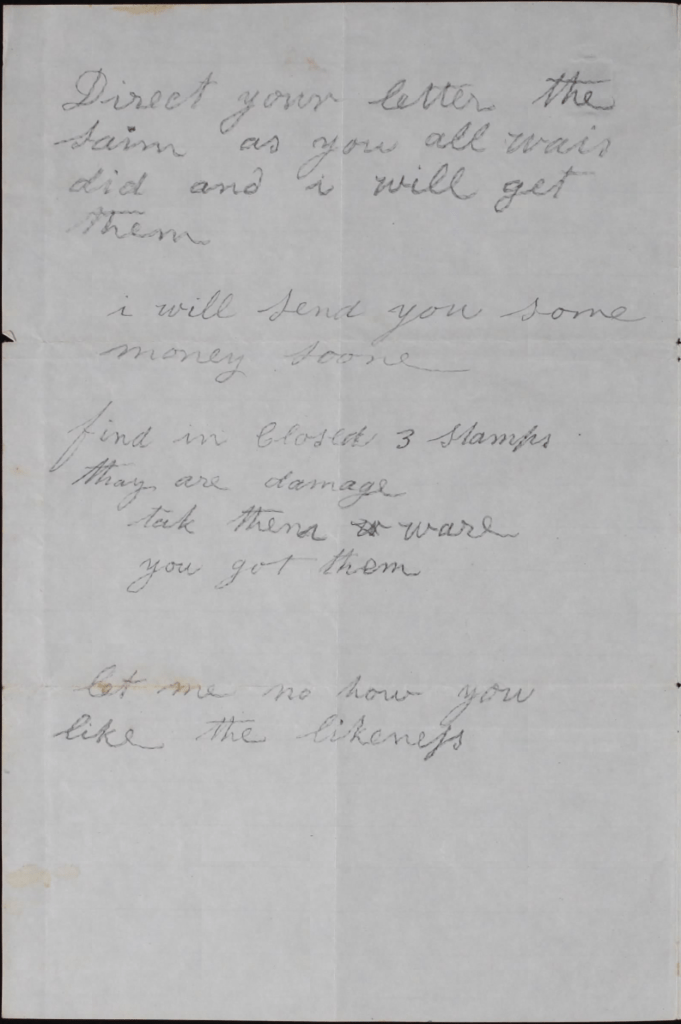 Direct your letter the
saim as you all wais
did and i will get
them
i will send you some
money soone
find in closed 3 stamps
thay are damage
tak them ware
you got them
let me no how you
like the likeness